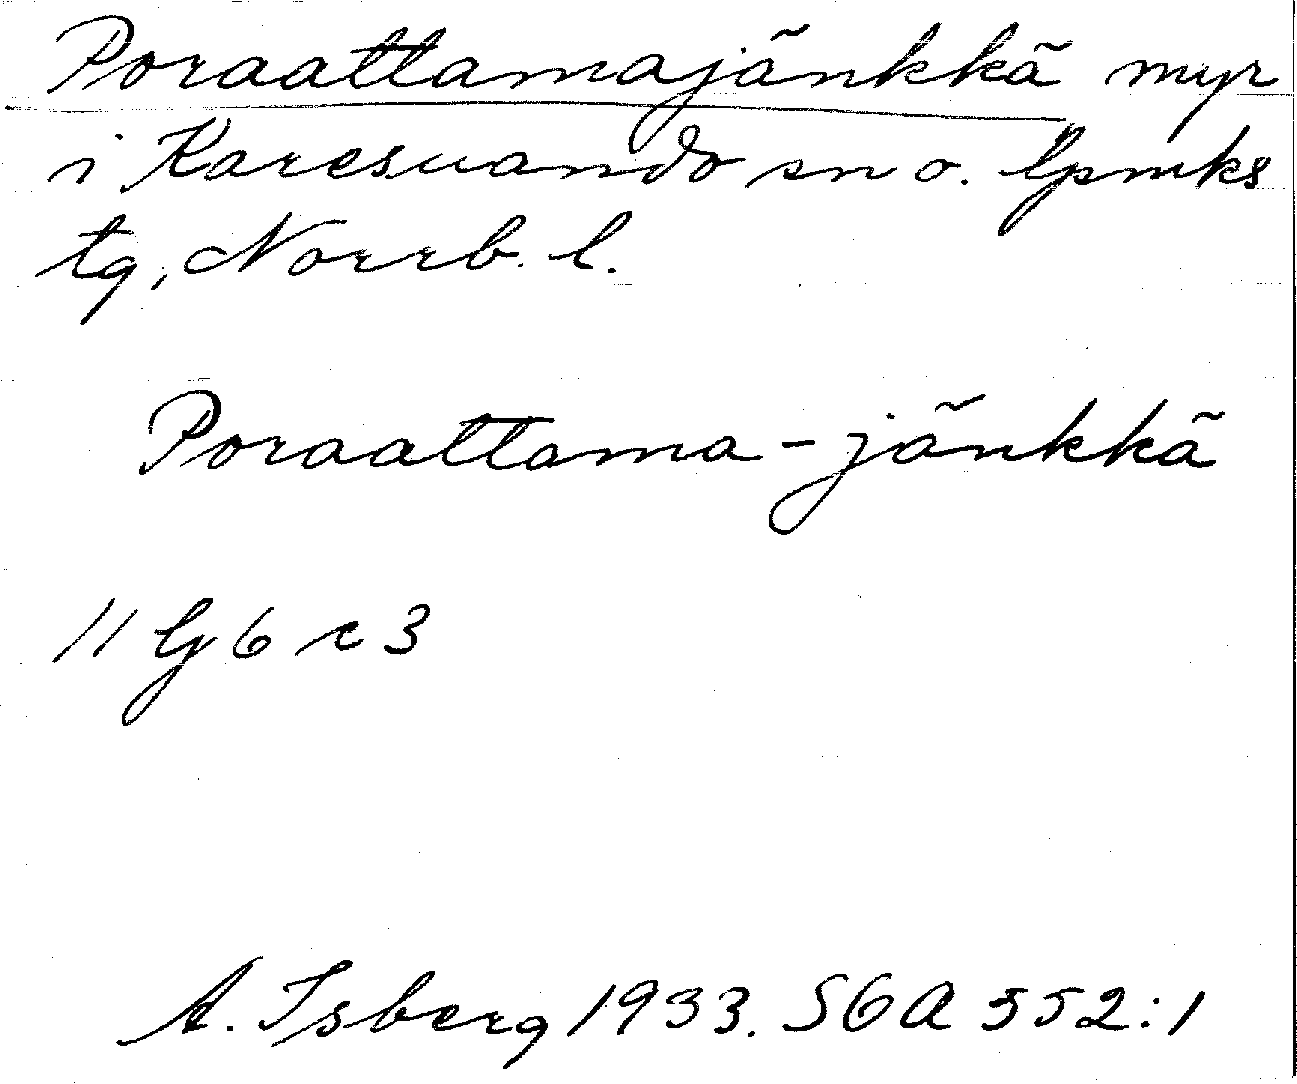 Poraattamajänkkä myr
i Karesuando sn o. lpmks
tg, Norrb. l.
Poraattama-jänkkä
11 G 6 c 3
A. Isberg 1933. SOA 552:1